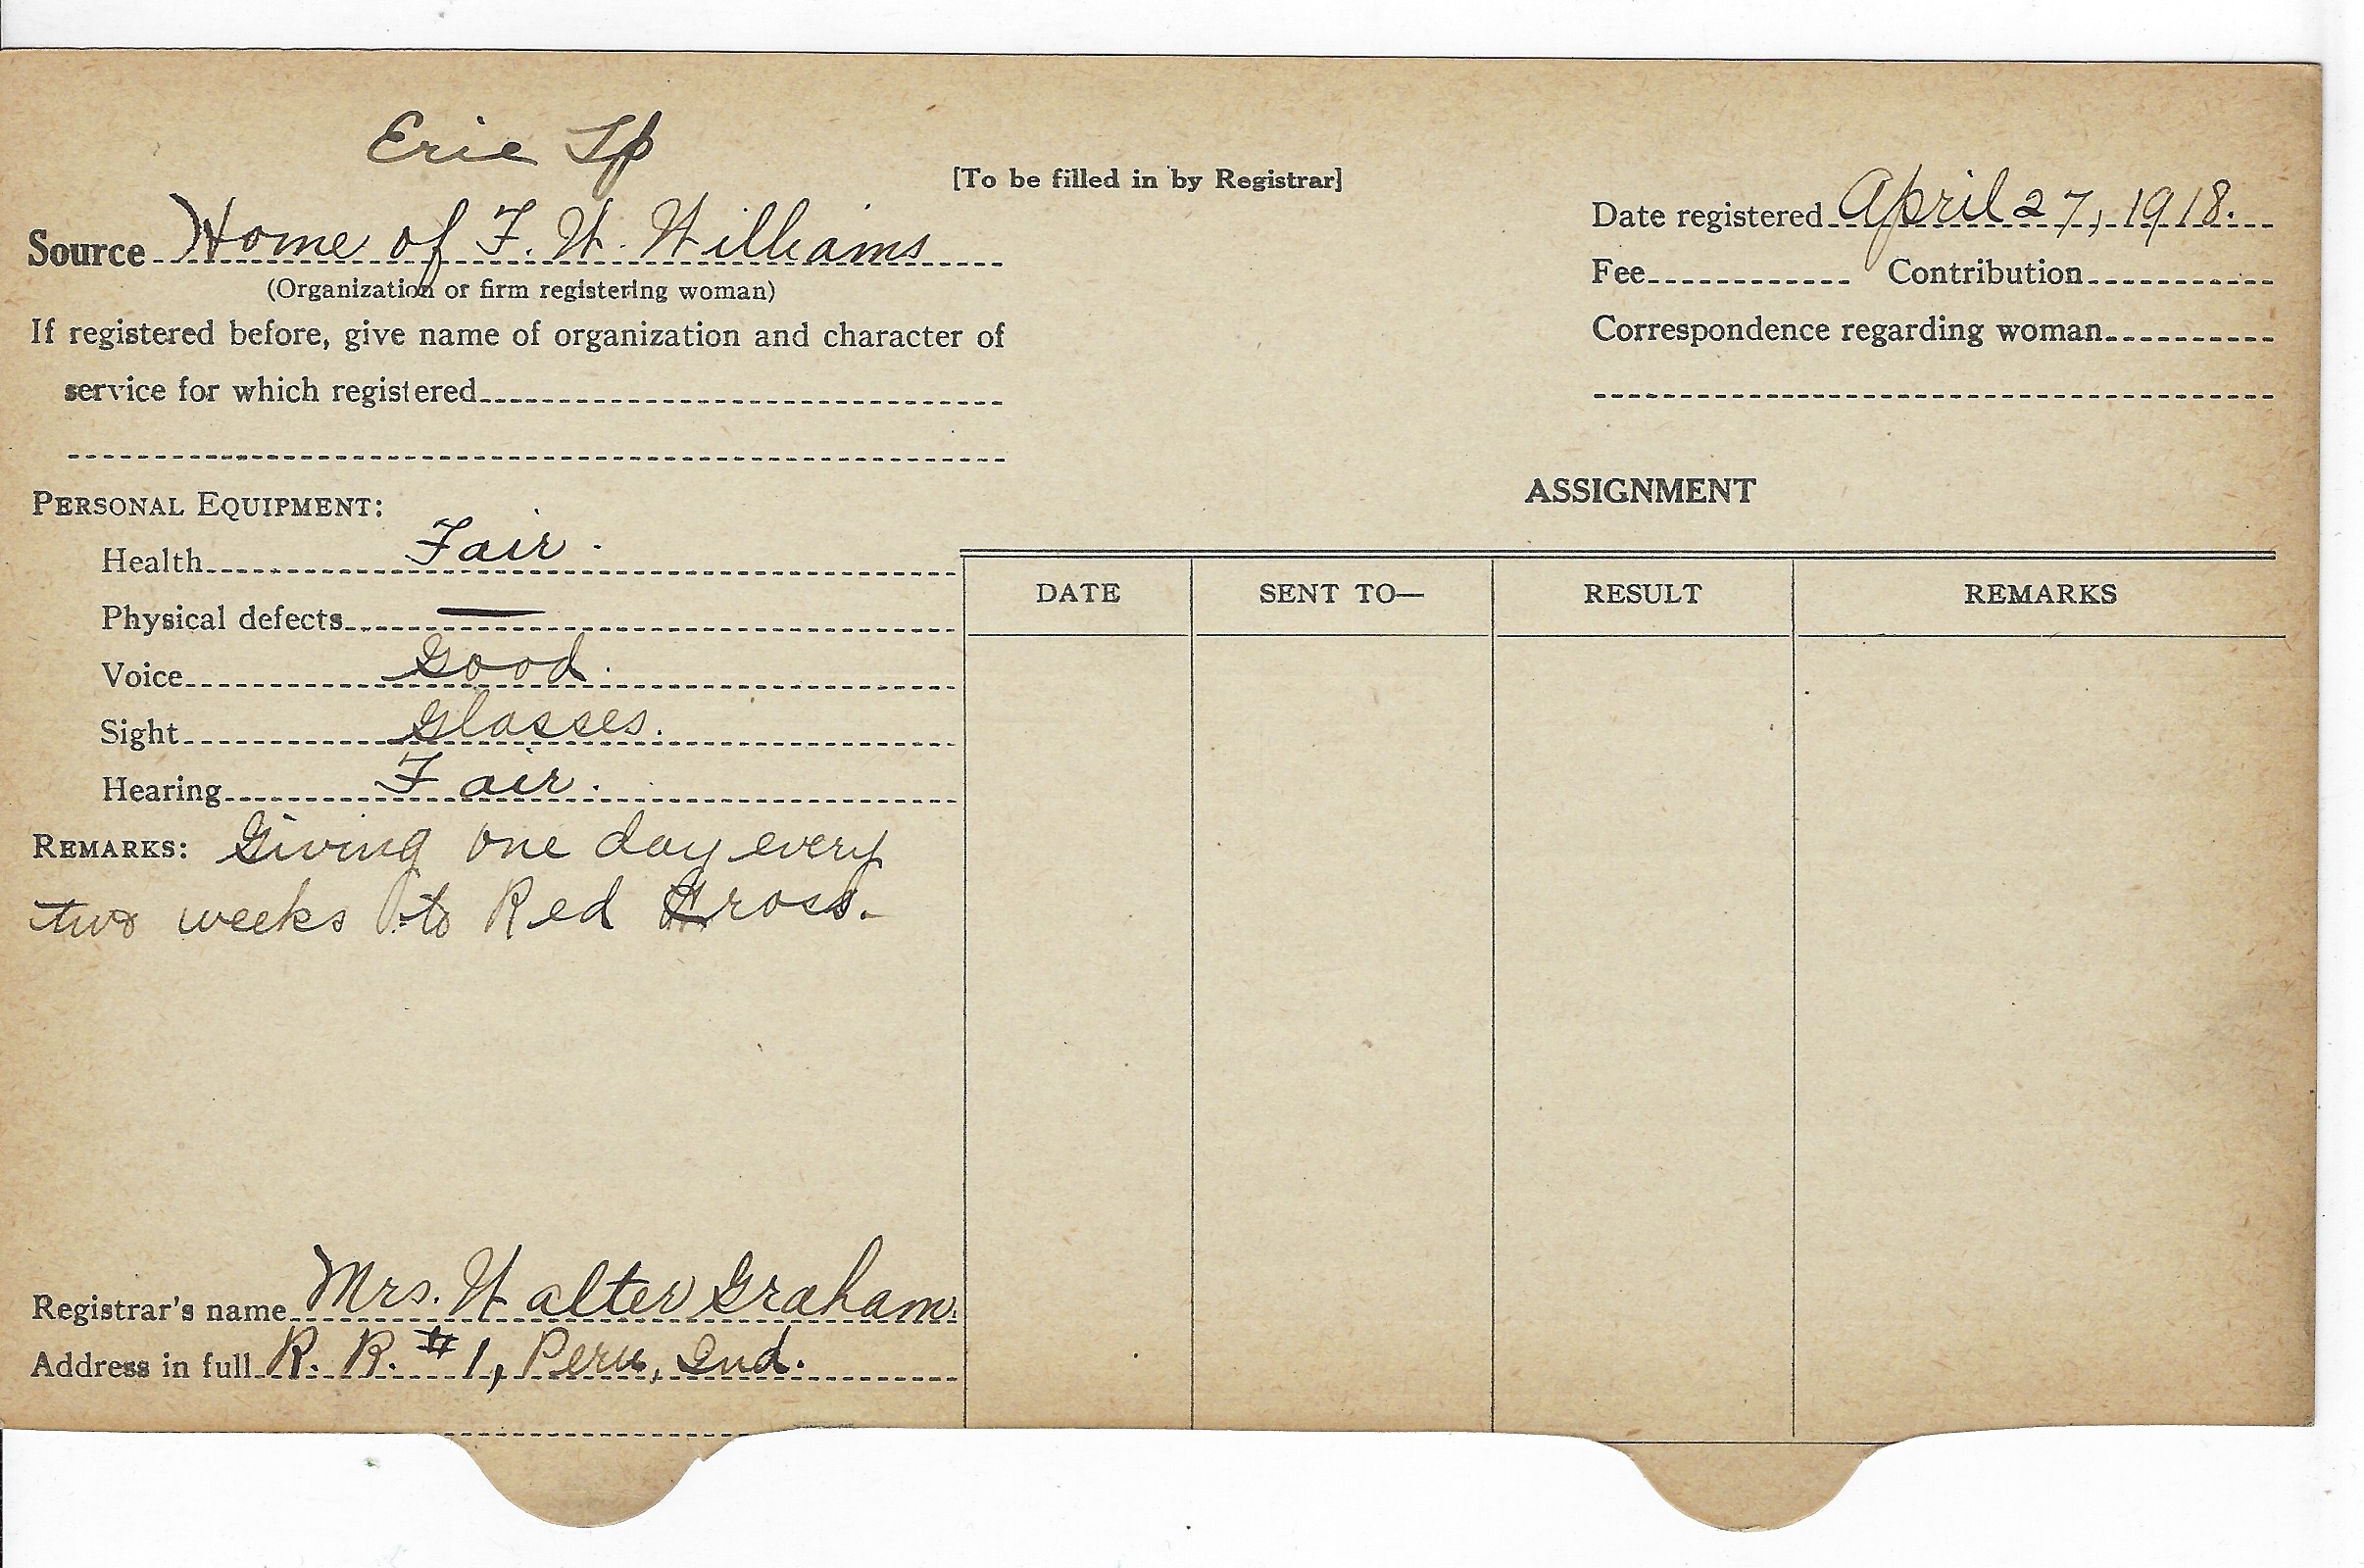 Erie Tp
[To be filled in by Registrar]
Source Home of F. W. Williams
(Organization or firm registering woman)
If registered before, give name of organization and character of
service for which registered
Date registered April 27, 1918.
Fee Contribution
Correspondence regarding woman
PERSONAL EQUIPMENT:
Health Fair.
Physical defects —
Voice Good.
Sight Glasses.
Hearing Fair.
REMARKS: Giving one day every
two weeks to Red Cross.
Registrar's name Mrs. Walter Graham.
Address in full R. R. #1, Peru, Ind.
ASSIGNMENT
DATE SENT TO— RESULT REMARKS